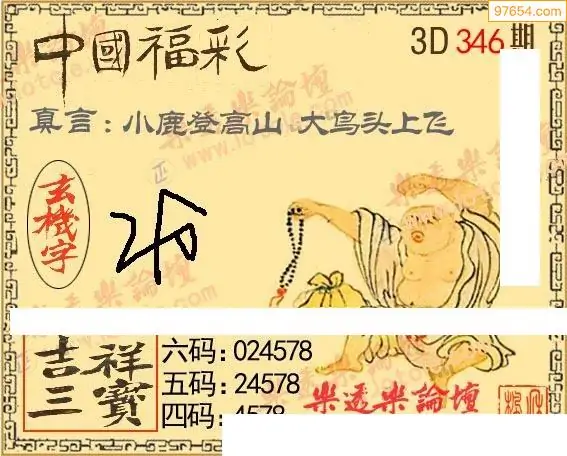 97654.com
中國福彩
3D 346期
真言:小鹿登高山 大鸟头上飞
玄機字
吉祥
三寶
六码:024578
五码:24578
四码:4578
樂透樂論壇